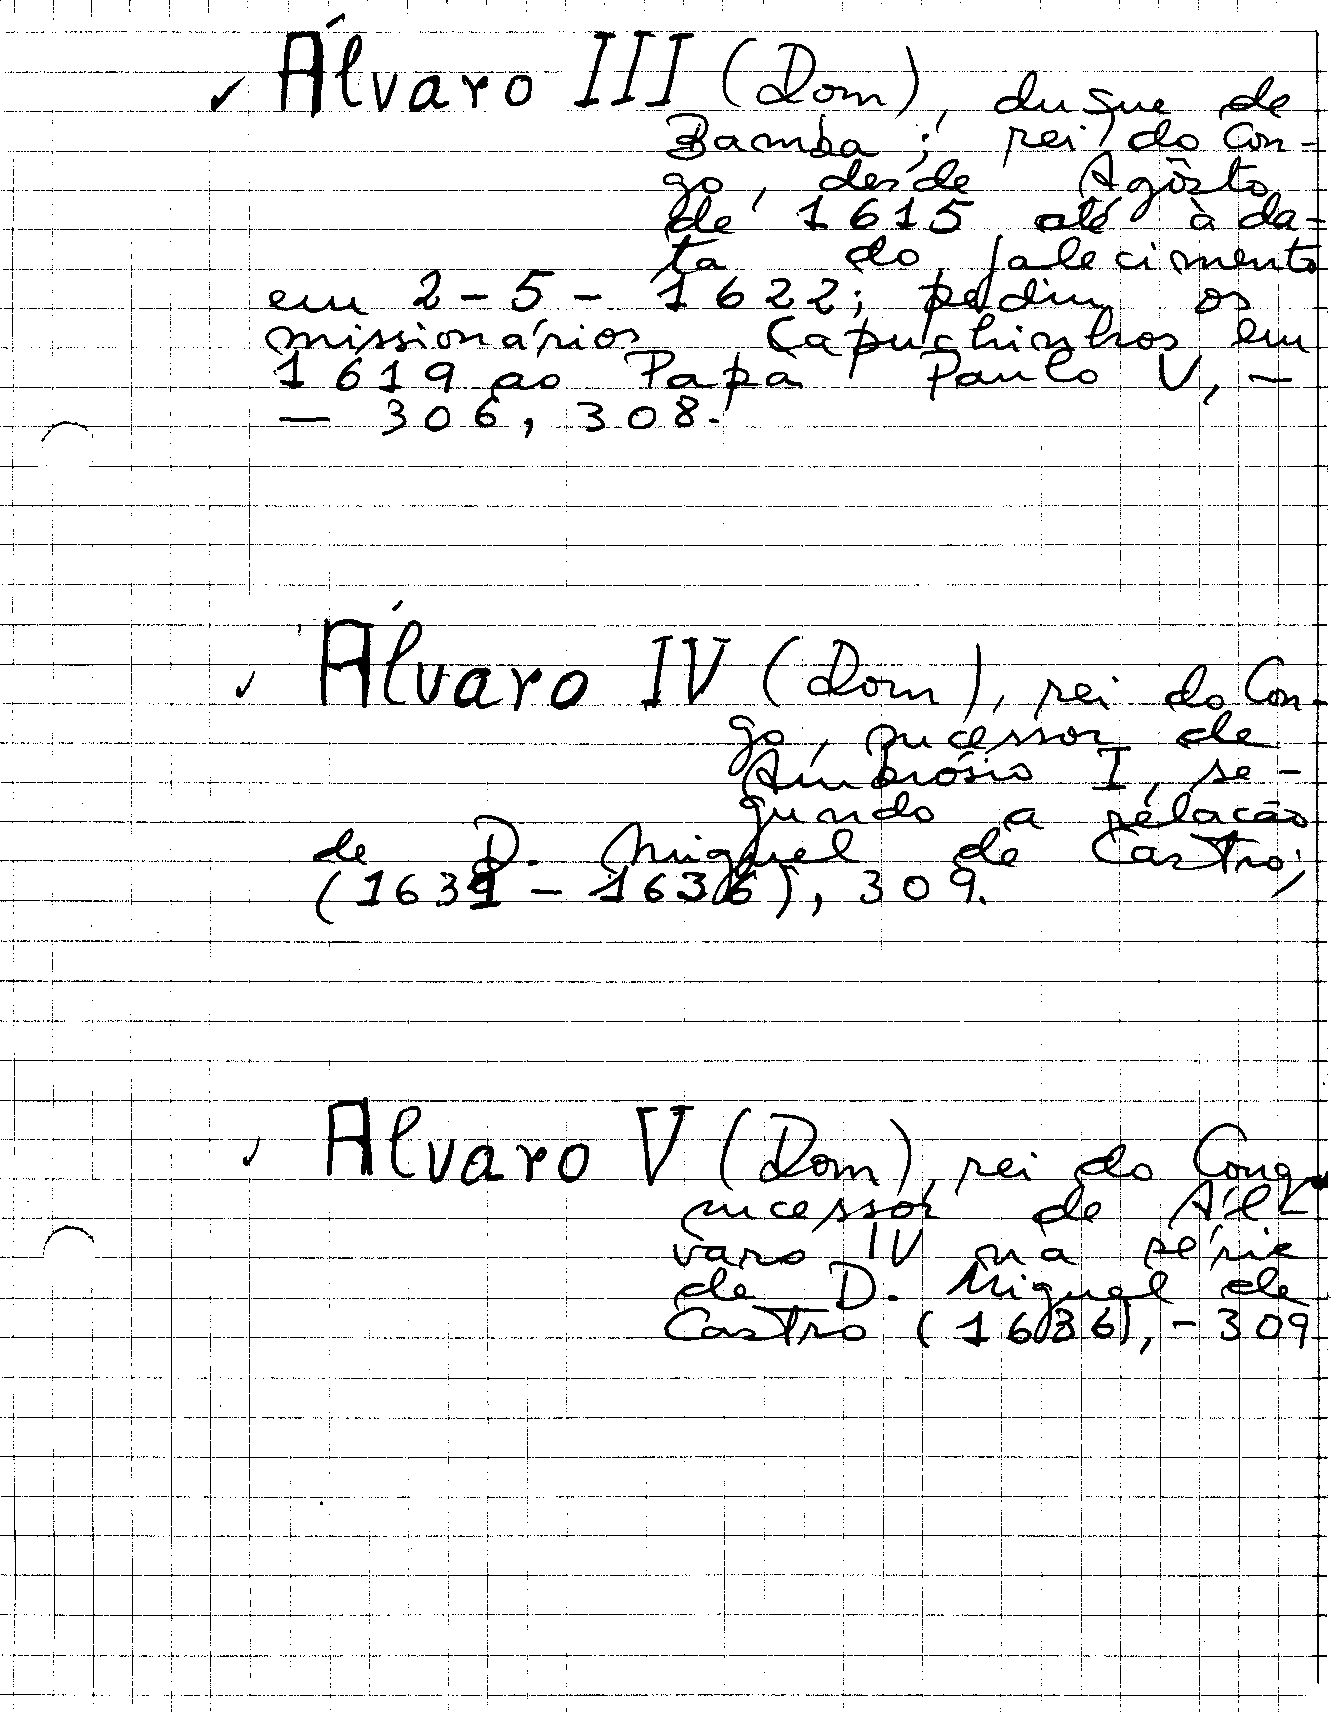 ✓ Álvaro III (Dom), duque de
Bamba; rei do Con-
go, desde Agôsto
de 1615 até à da-
ta do falecimento
em 2-5-1622; pediu os
missionários Capuchinhos em
1619 ao Papa Paulo V, —
— 306, 308.
✓ Álvaro IV (Dom), rei do Con-
go, sucessor de
Ambrósio I, se-
gundo a relação
de D. Miguel de Castro,
(1631 - 1636), 309.
✓ Alvaro V (Dom), rei do Congo
sucessor de Ál-
varo IV na série
de D. Miguel de
Castro (1636), - 309